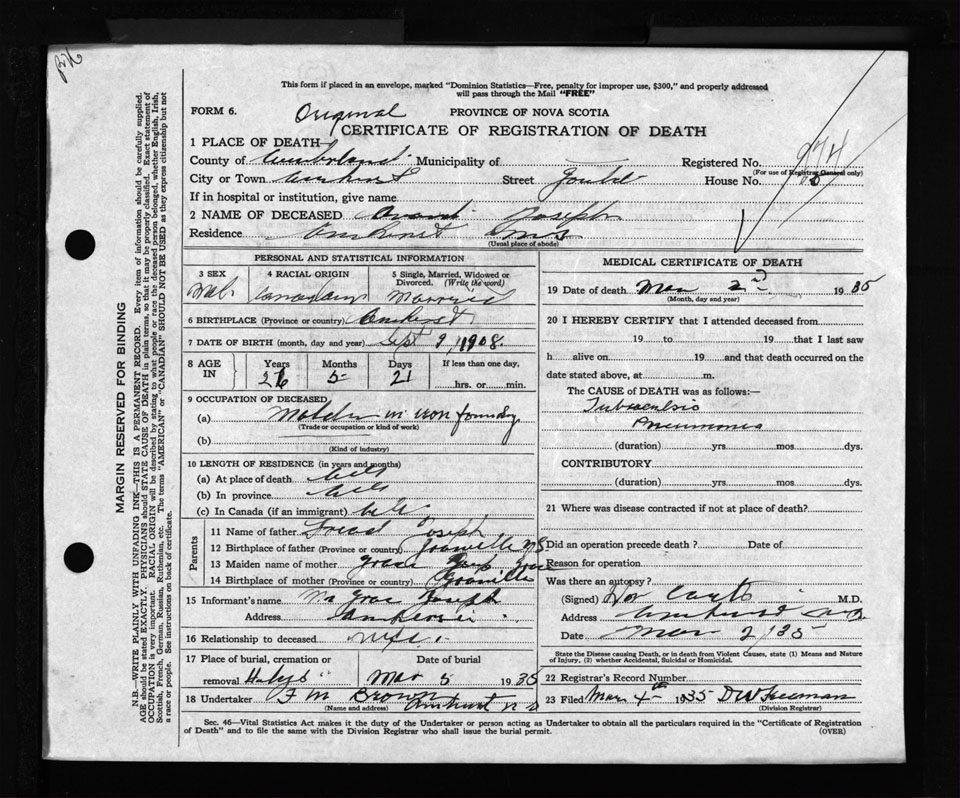 This form if placed in an envelope, marked "Dominion Statistics—Free, penalty for improper use, $300," and properly addressed
will pass through the Mail "FREE"
FORM 6. Original PROVINCE OF NOVA SCOTIA
CERTIFICATE OF REGISTRATION OF DEATH
1 PLACE OF DEATH
County of Cumberland Municipality of Registered No. 974
(For use of Registrar General only)
City or Town Amherst Street House No.
If in hospital or institution, give name
2 NAME OF DECEASED Joseph
Residence Amherst N S
(Usual place of abode)
PERSONAL AND STATISTICAL INFORMATION
3 SEX 4 RACIAL ORIGIN 5 Single, Married, Widowed or Divorced. (Write the word)
Male Canadian Married
6 BIRTHPLACE (Province or country) Amherst
7 DATE OF BIRTH (month, day and year) Sept 9, 1908.
8 AGE IN Years Months Days If less than one day,
26 5 21 hrs. or min.
9 OCCUPATION OF DECEASED
(a) Molder in iron foundry
(Trade or occupation or kind of work)
(b)
(Kind of industry)
10 LENGTH OF RESIDENCE (in years and months)
(a) At place of death life
(b) In province life
(c) In Canada (if an immigrant) life
Parents
11 Name of father Joseph
12 Birthplace of father (Province or country) N S
13 Maiden name of mother
14 Birthplace of mother (Province or country)
15 Informant's name Joseph
Address
16 Relationship to deceased wife
17 Place of burial, cremation or Date of burial
removal Mar 5 1935
18 Undertaker F M Brown Amherst N S
(Name and address)
MEDICAL CERTIFICATE OF DEATH
19 Date of death Mar 2nd 1935
(Month, day and year)
20 I HEREBY CERTIFY that I attended deceased from
19 to 19 that I last saw
h alive on 19 and that death occurred on the
date stated above, at m.
The CAUSE OF DEATH was as follows:—
Tuberculosis
Pneumonia
(duration) yrs. mos. dys.
CONTRIBUTORY
(duration) yrs. mos. dys.
21 Where was disease contracted if not at place of death?
Did an operation precede death? Date of
Reason for operation
Was there an autopsy?
(Signed) M.D.
Address Amherst N S
Date Mar 2/35
State the Disease causing Death, or in death from Violent Causes, state (1) Means and Nature
of Injury, (2) whether Accidental, Suicidal or Homicidal.
22 Registrar's Record Number
23 Filed Mar 4th 1935 D W Freeman
(Division Registrar)
Sec. 46—Vital Statistics Act makes it the duty of the Undertaker or person acting as Undertaker to obtain all the particulars required in the "Certificate of Registration
of Death" and to file the same with the Division Registrar who shall issue the burial permit. (OVER)
MARGIN RESERVED FOR BINDING
N.B.—WRITE PLAINLY WITH UNFADING INK—THIS IS A PERMANENT RECORD. Every item of information should be carefully supplied.
AGE should be stated EXACTLY. PHYSICIANS should STATE CAUSE OF DEATH in plain terms, so that it may be properly classified. Exact statement of
OCCUPATION is very important. RACIAL ORIGIN will be described by stating to what people or race the deceased person belonged, whether English, Irish,
Scottish, French, German, Russian, Ruthenian, etc. The terms "AMERICAN" or "CANADIAN" SHOULD NOT BE USED as they express citizenship but not
a race or people. See instructions on back of certificate.